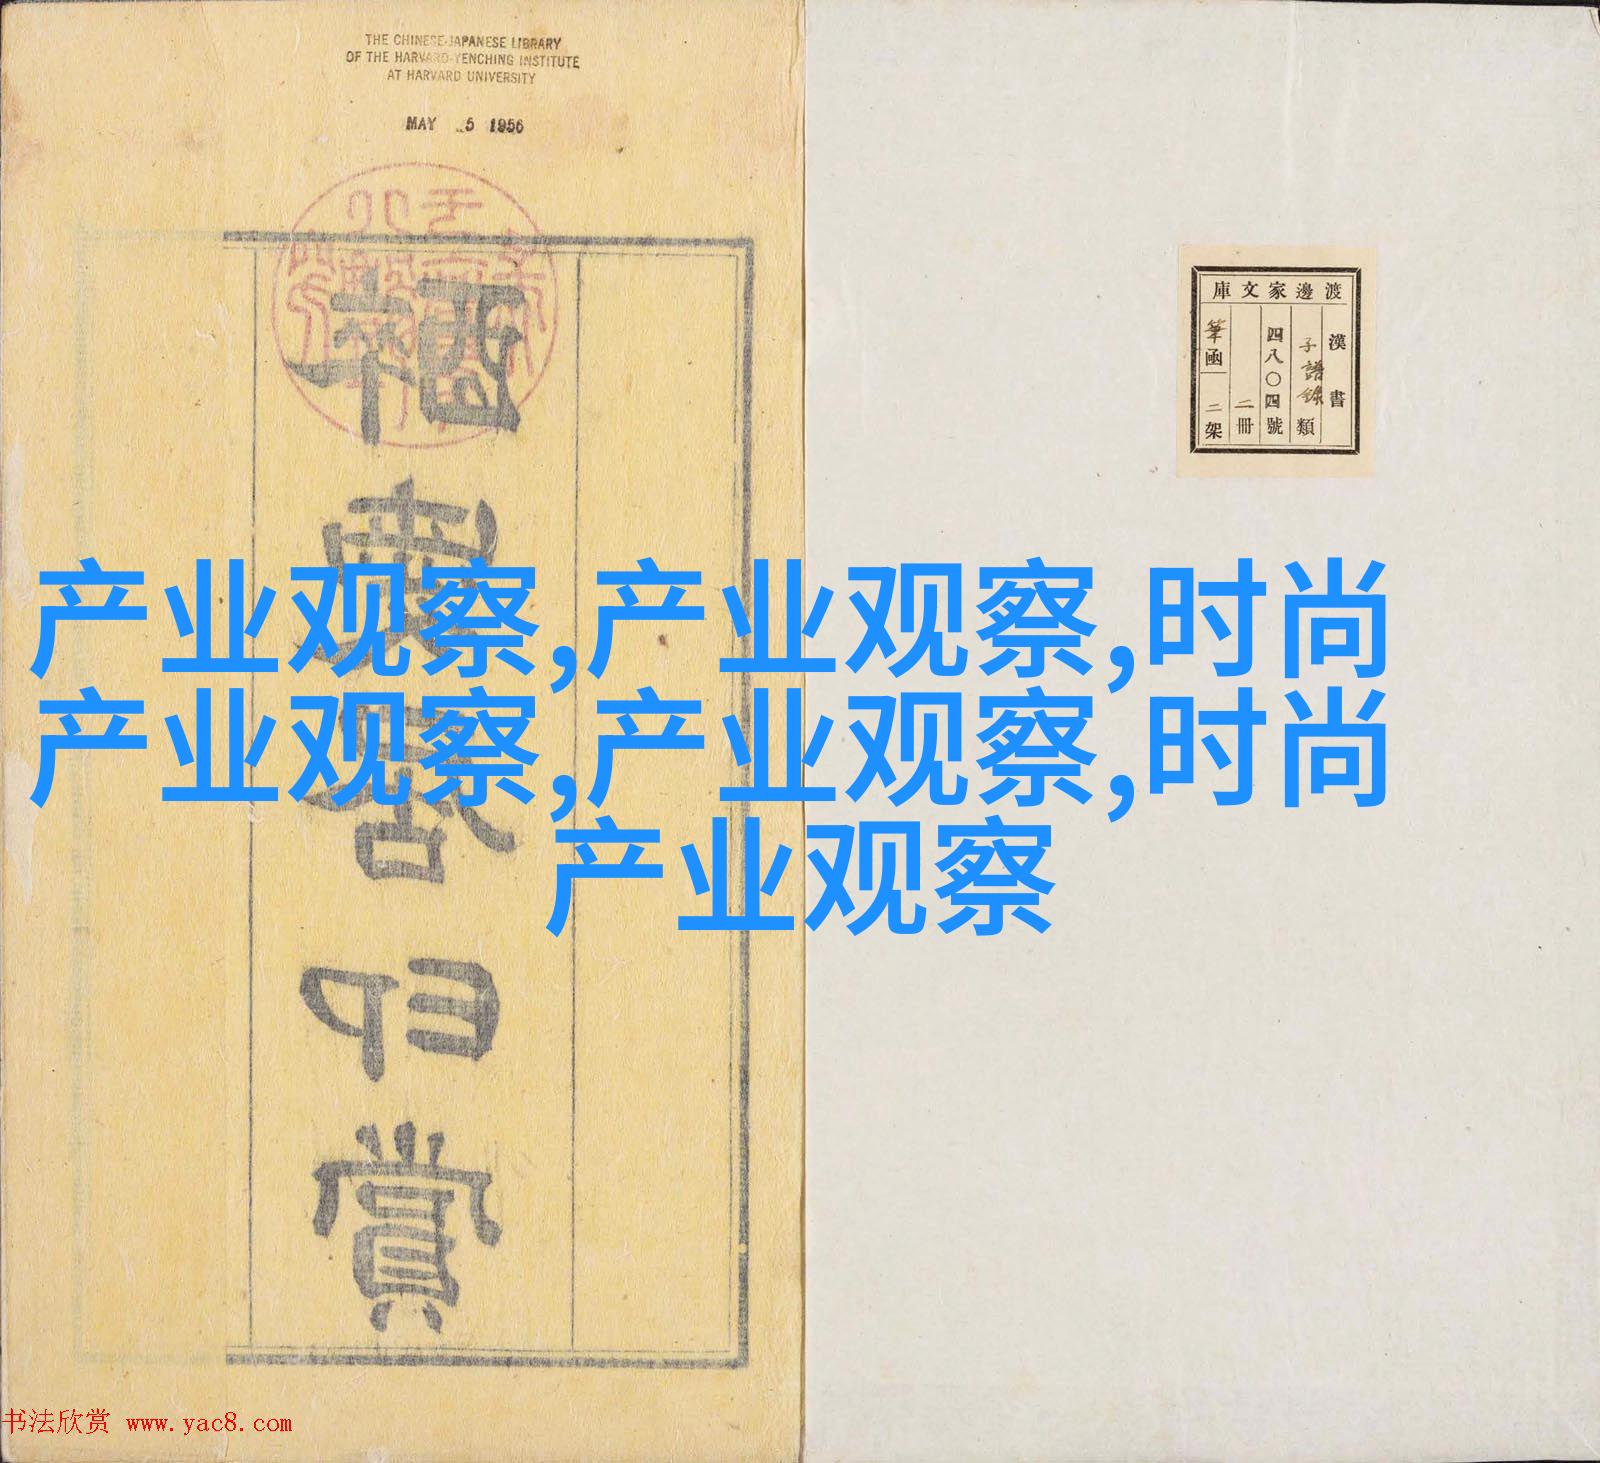 THE CHINESE-JAPANESE LIBRARY
OF THE HARVARD-YENCHING INSTITUTE
AT HARVARD UNIVERSITY
MAY 5 1956
渡邊家文庫
漢書
子譜錄類
四八〇四號
二冊
筆函二架
产业观察,产业观察,时尚
产业观察,产业观察,时尚
产业观察
賞
书法欣赏 www.yac8.com